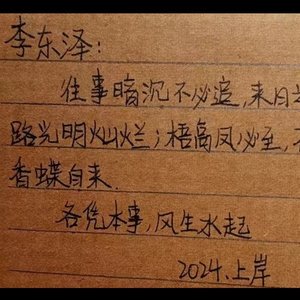 李东泽：
往事暗沉不必追，来日
路光明灿灿烂；梧高凤必至，
香蝶自来.
各凭本事，风生水起
2024.上岸